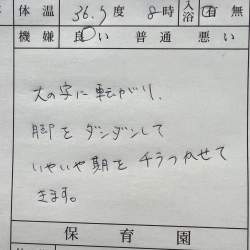 体温 36.5度 8時 入浴 有 無
機嫌 良い 普通 悪い
大の字に転がり、
脚をダンダンして
いやいや期をチラつかせて
きます。
保育園